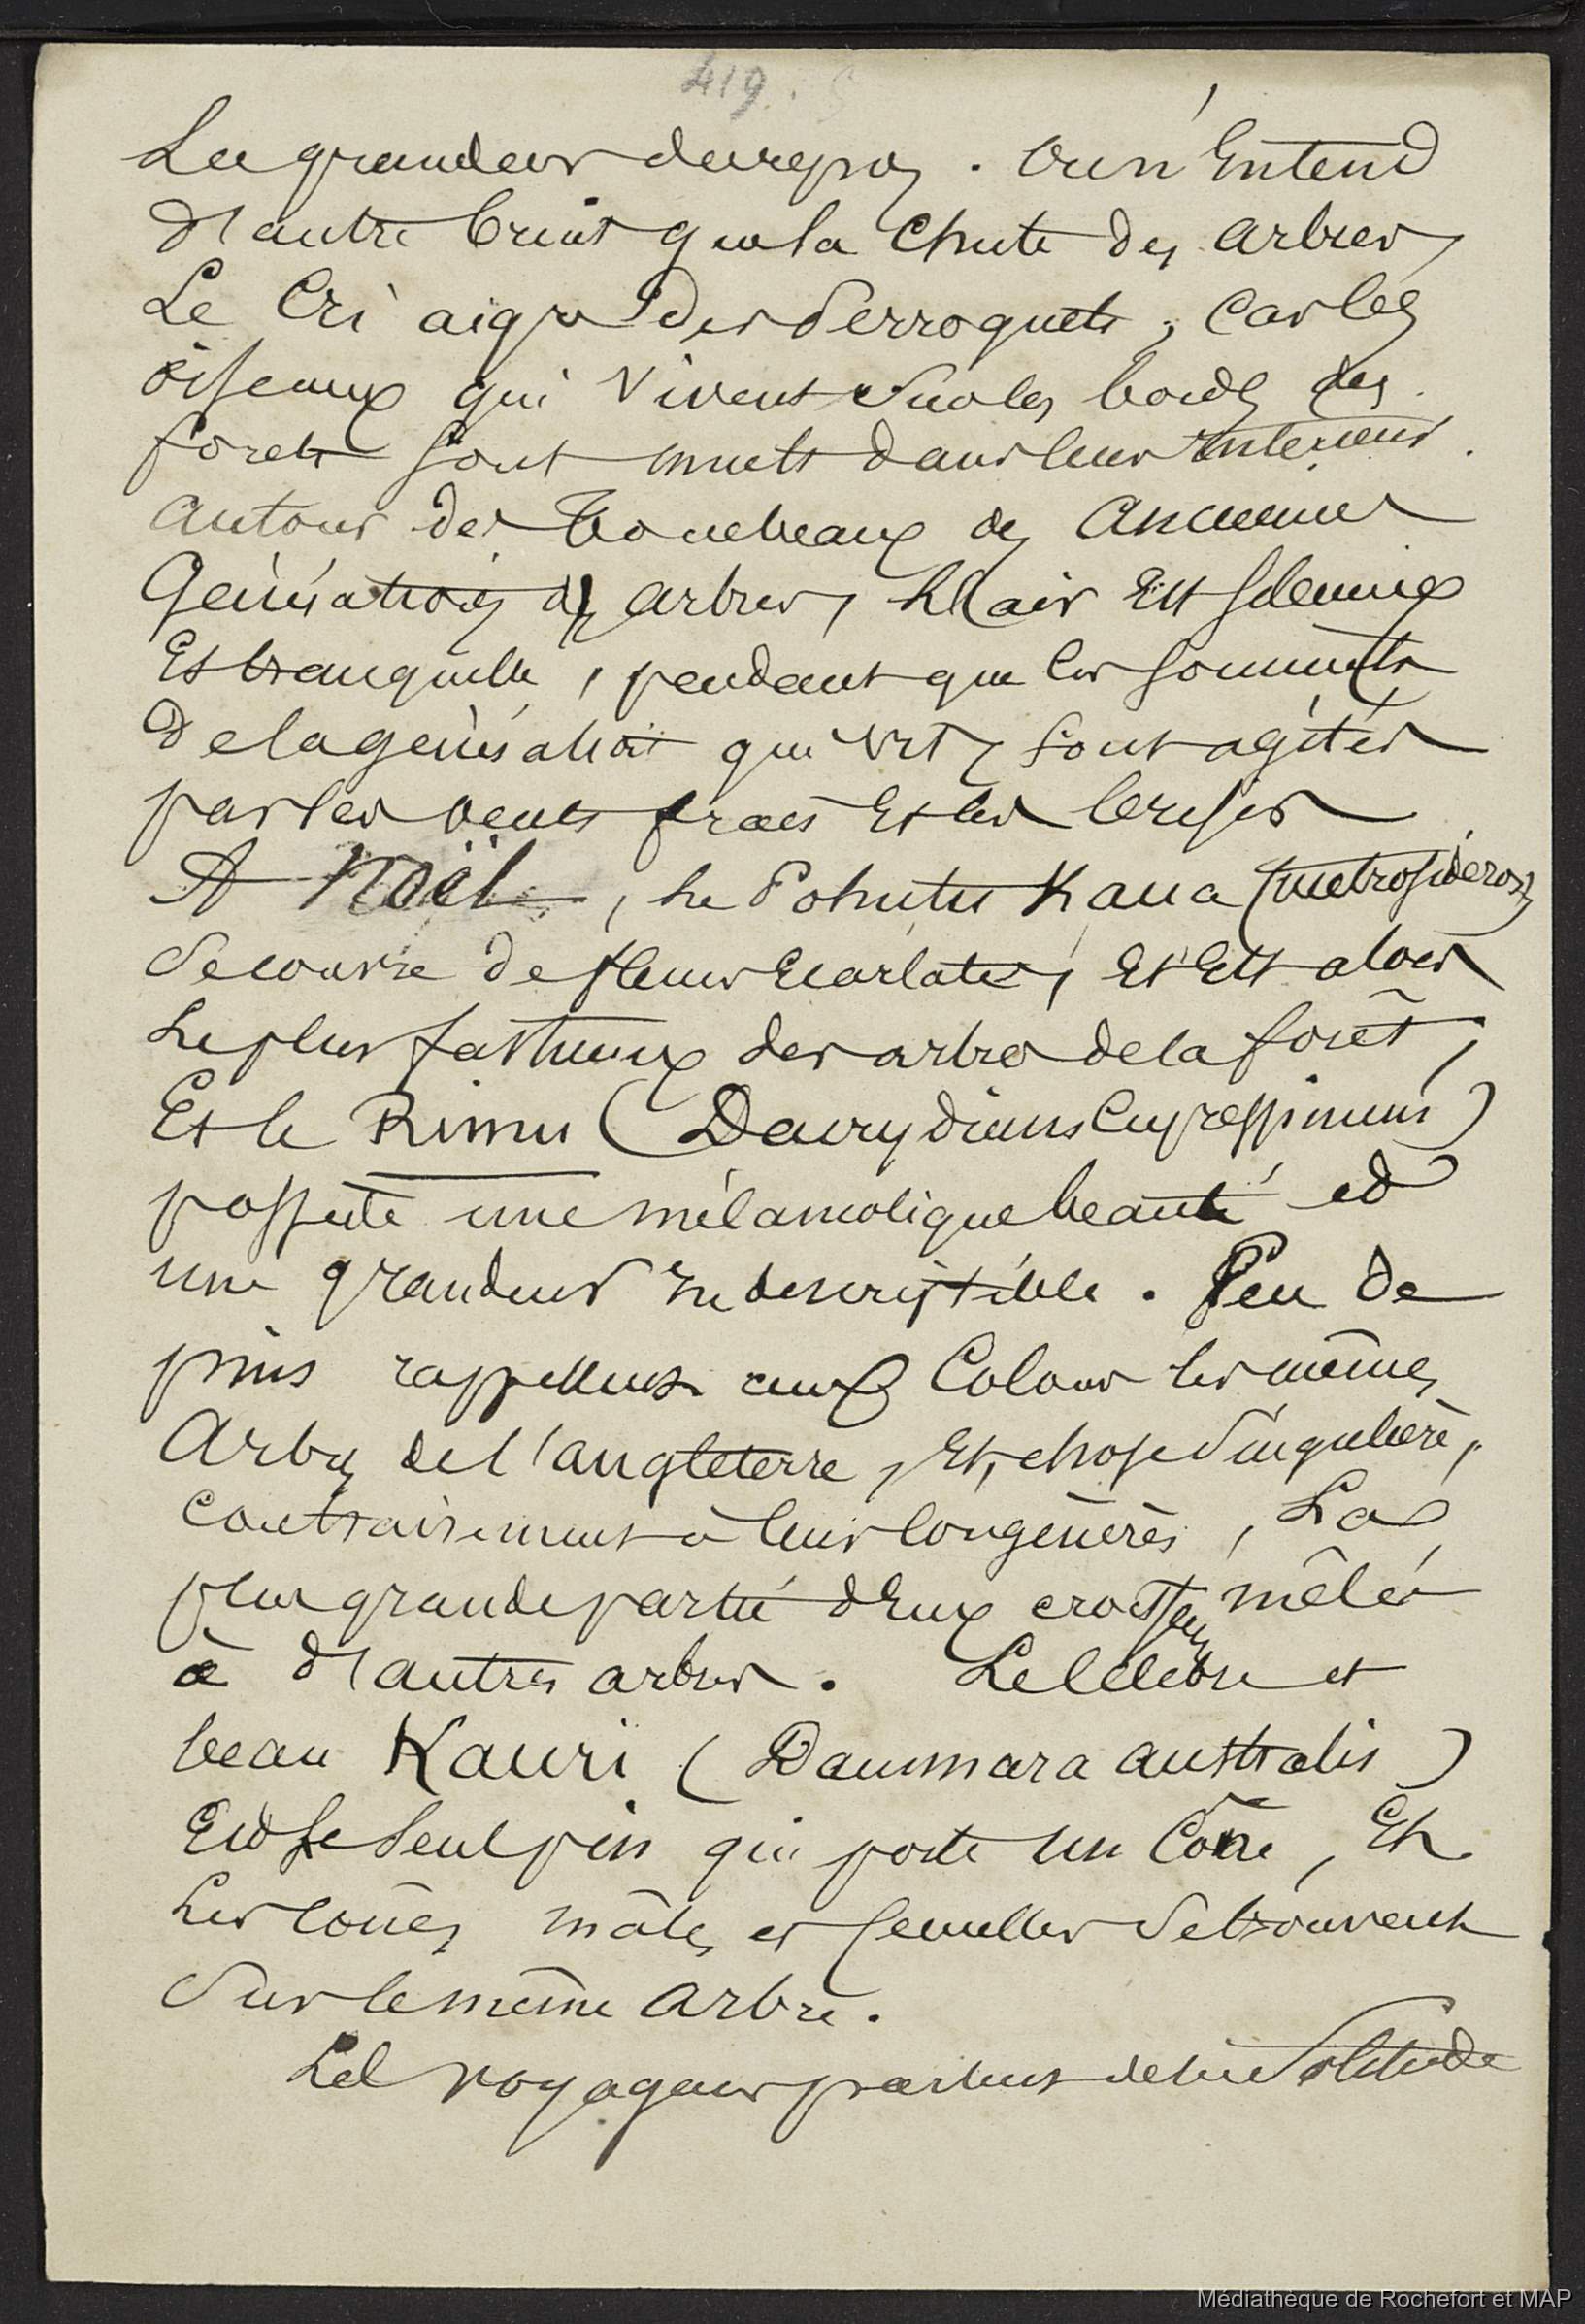 419.
La grandeur du repos. On n'entend
d'autre bruit que la chute des arbres,
Le Cri aigu des Perroquets, car les
oiseaux qui vivent sur les bords des
forets sont muets dans leur interieur.
Autour des Tombeaux des Anciennes
Générations des arbres, L'air Est solennel
Et tranquille, pendant que les sommets
De la génération qui vit, sont agités
par les vents frais Et les brises
A Noël, Le Pohutu Kaua (metrosideros)
Se couvre de fleurs Ecarlates, Et Est alors
Le plus fastueux des arbres de la forêt,
Et le Rimu (Dacrydium Cupressinum)
possède une mélancolique beauté et
une grandeur indescriptible. Peu de
pins rappellent aux Colons les mêmes
Arbres de l'angleterre, Et, chose Singulière,
Contrairement à leurs congénères, La
plus grande partie d'Eux croissent mêlés
à d'autres arbres. Le Célèbre et
beau Kauri (Dammara australis)
Est le Seul pin qui porte un Cône, Et
Les cônes mâles et femelles Se trouvent
Sur le même Arbre.
Le voyageur partout de la Solitude
Médiathèque de Rochefort et MAP